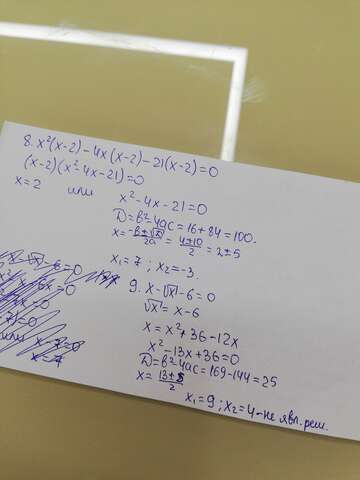 8. x²(x-2)-4x(x-2)-21(x-2)=0
(x-2)(x²-4x-21)=0
x=2 или x²-4x-21=0
D=b²-4ac=16+84=100.
x=(-b±√D)/2a=(4±10)/2=2±5
x₁=7; x₂=-3.
9. x-√x-6=0
√x=x-6
x=x²+36-12x
x²-13x+36=0
D=b²-4ac=169-144=25
x=(13±5)/2
x₁=9; x₂=4-не явл. реш.